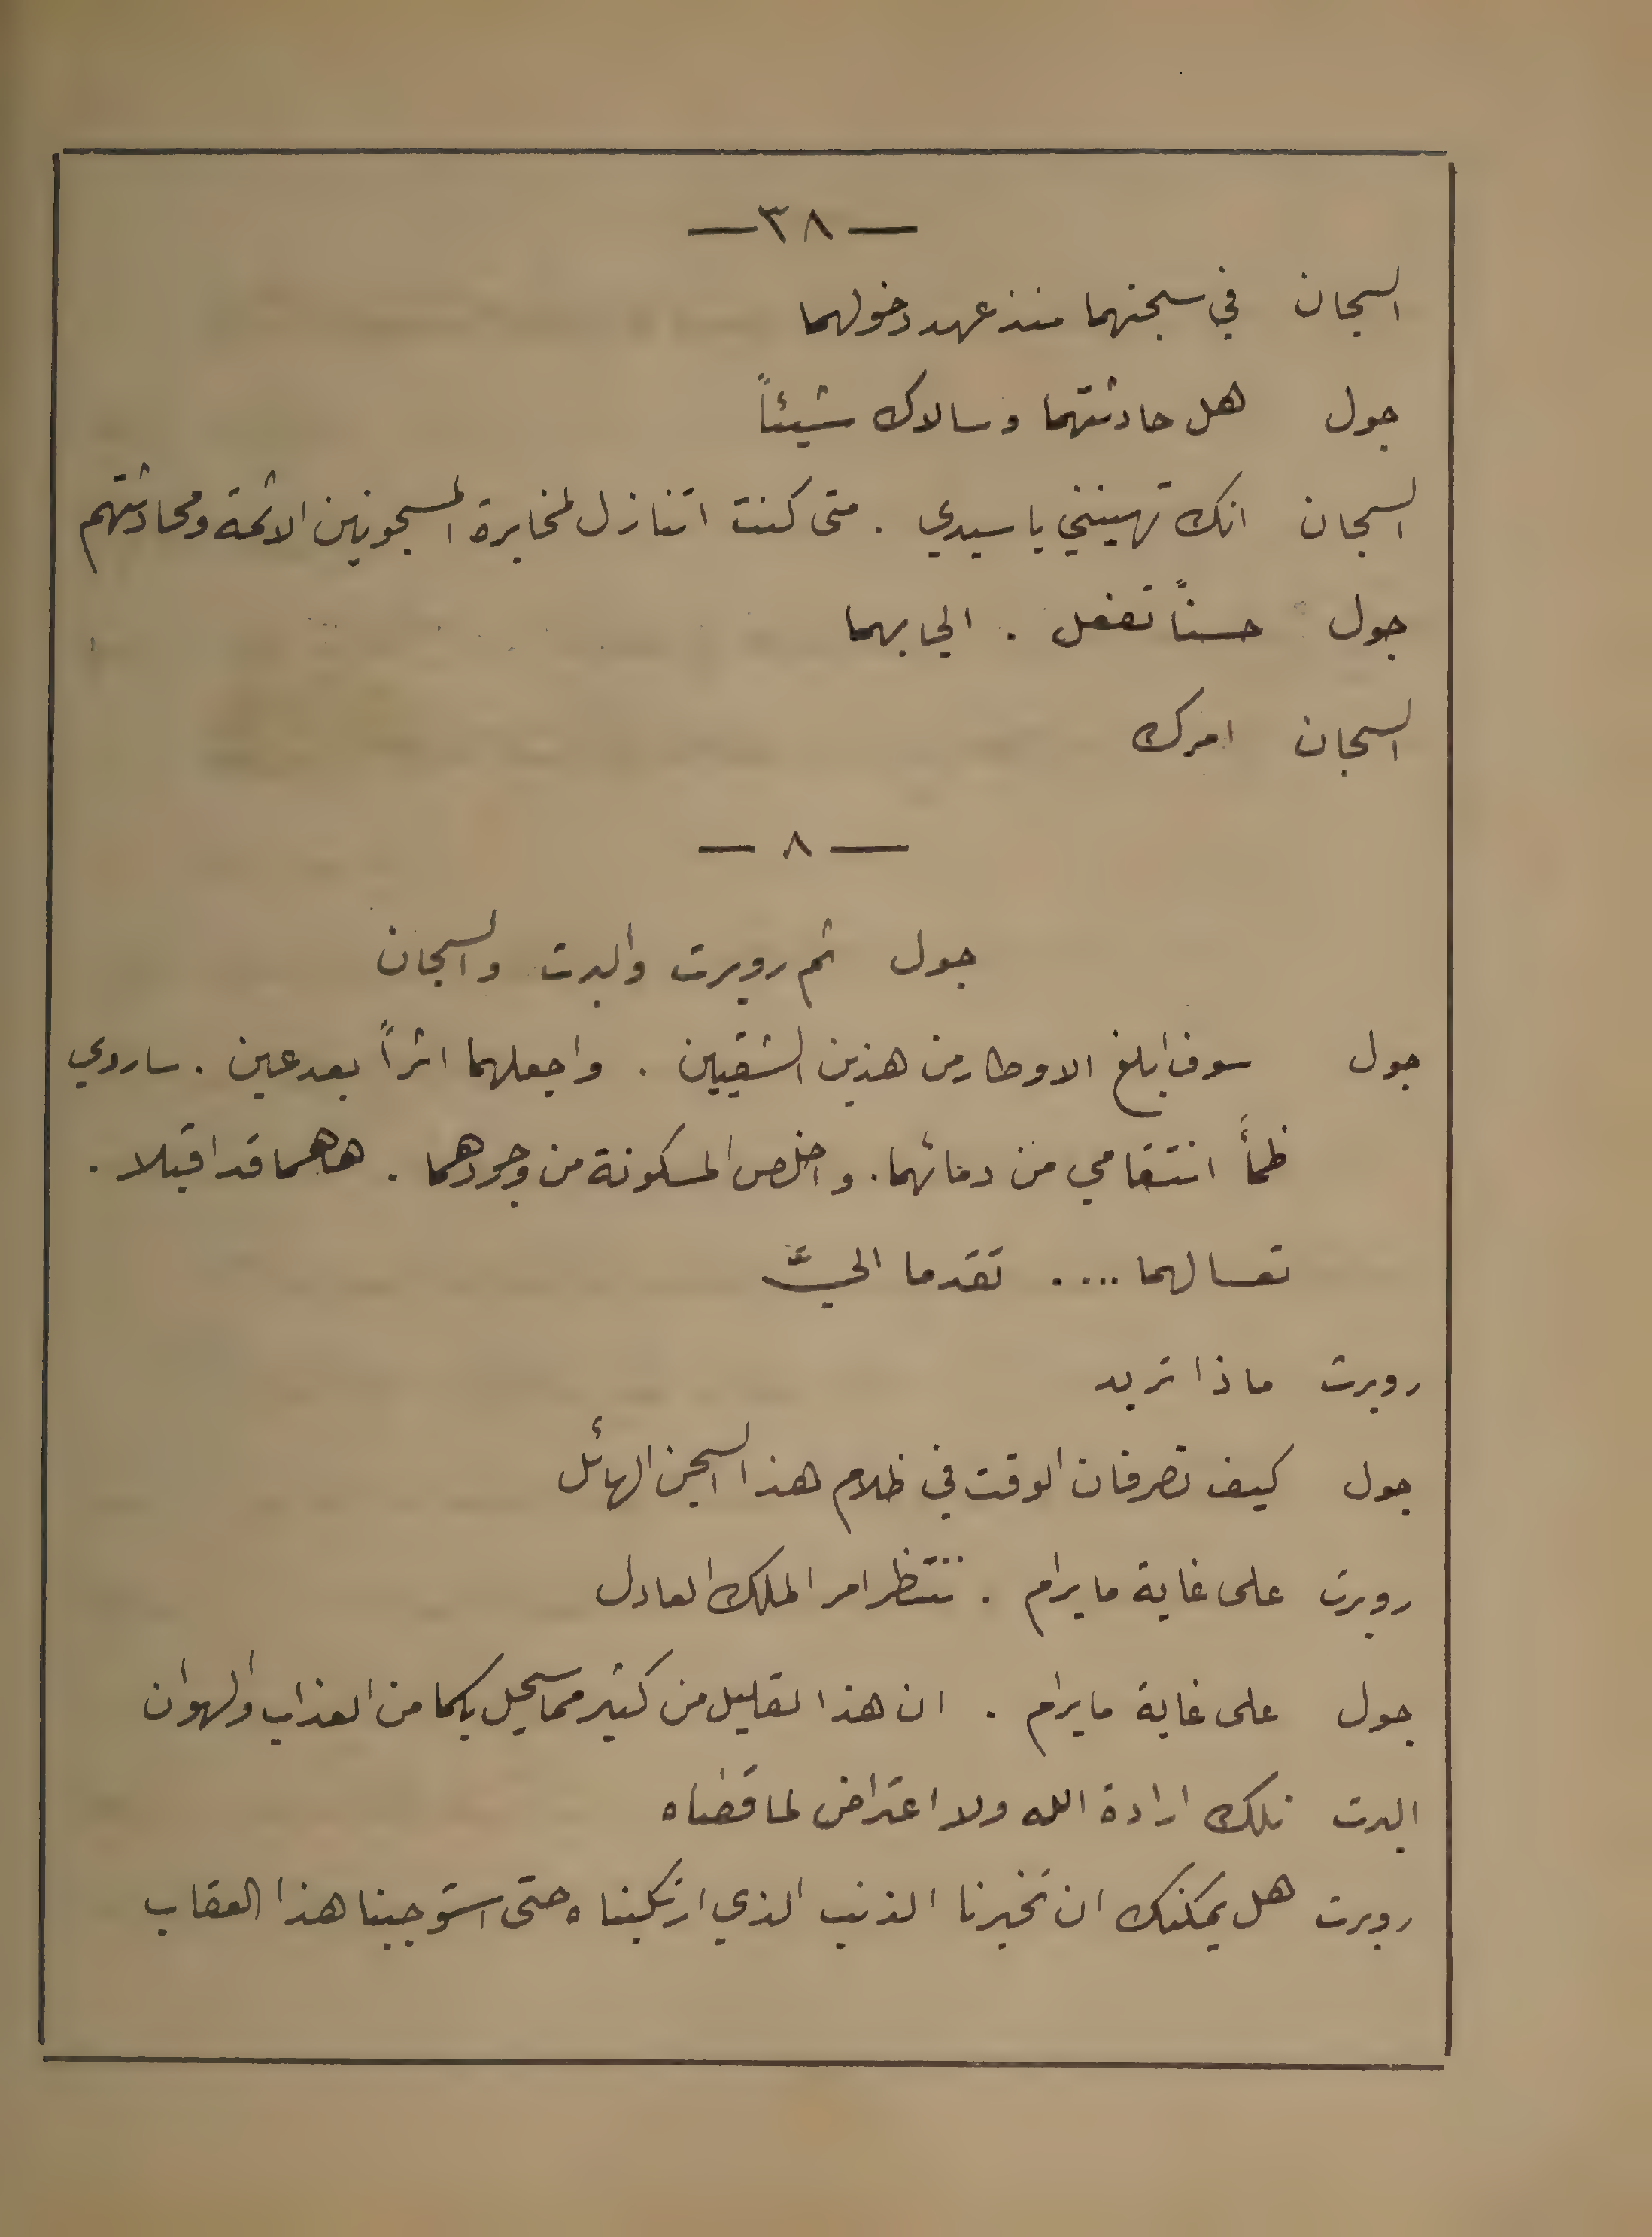 — ٣٨ —
السجان في سجنهما منذ عهد دخولهما
جول هل حادثتهما وسالاك شيئاً
السجان انك تهينني يا سيدي . متى كنت اتنازل لمخابرة المسجونين الاثمة ومحادثتهم
جول حسناً تفعل . الي بهما
السجان امرك
— ٨ —
جول ثم روبرت والبرت والسجان
جول سوف ابلغ الاوطار من هذين الشقيين . واجعلهما اثراً بعد عين . ساروي
ظمأَ انتقامي من دمائهما . واخلص المسكونة من وجودهما . هاهما قد اقبلا .
تعسا لهما .... تقدما اليَّ
روبرت ماذا تريد
جول كيف تصرفان الوقت في ظلام هذا السجن الهائل
روبرت على غاية ما يرام . ننتظر امر الملك العادل
جول على غاية ما يرام . ان هذا لقليل من كثير مما سيحل بكما من العذاب والهوان
البرت تلك ارادة الله ولا اعتراض لما قضاه
روبرت هل يمكنك ان تخبرنا الذنب الذي ارتكبناه حتى استوجبنا هذا العقاب